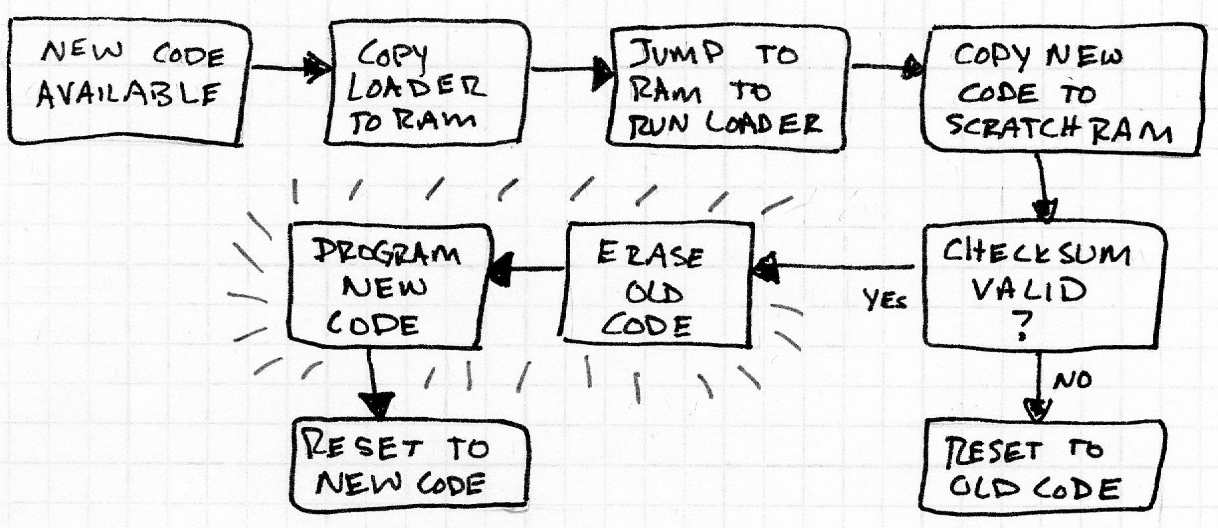 NEW CODE
AVAILABLE
COPY
LOADER
TO RAM
JUMP TO
RAM TO
RUN LOADER
COPY NEW
CODE TO
SCRATCH RAM
CHECKSUM
VALID
?
YES
NO
ERASE
OLD
CODE
PROGRAM
NEW
CODE
RESET TO
NEW CODE
RESET TO
OLD CODE